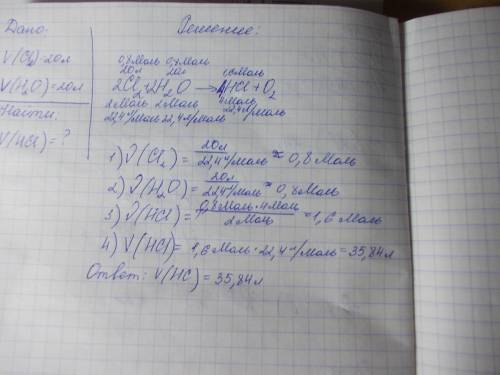 Дано:
V(Cl₂)=20л
V(H₂O)=20л
Найти:
V(HCl)=?
Решение:
0,8моль 0,8моль 1,6моль
20л 20л
2Cl₂+2H₂O → 4HCl+O₂
2моль 2моль 4моль
22,4л/моль 22,4л/моль 22,4л/моль
1) ν(Cl₂) = 20л / 22,4л/моль ≈ 0,8моль
2) ν(H₂O) = 20л / 22,4л/моль ≈ 0,8моль
3) ν(HCl) = 0,8моль·4моль / 2моль = 1,6моль
4) V(HCl) = 1,6моль·22,4л/моль = 35,84л
Ответ: V(HCl) = 35,84л.